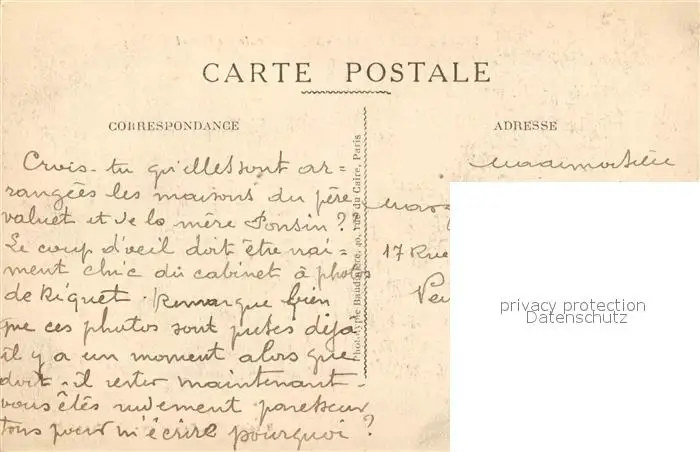 CARTE POSTALE
CORRESPONDANCE
Crois-tu qu'elles sont ar=
rangées les maisons du père
valuet et de la mère Ponsin ?
Le coup d'oeil doit être vrai=
ment chic du cabinet à photos
de Riquet. Remarque bien
que ces photos sont prises déjà
il y a un moment alors que
doit-il rester maintenant.
vous êtes rudement paresseux
tous pour m'écrire pourquoi ?
Phototypie Baudinière, 40, rue du Caire, Paris
ADRESSE
Mademoiselle
17 Rue
privacy protection
Datenschutz